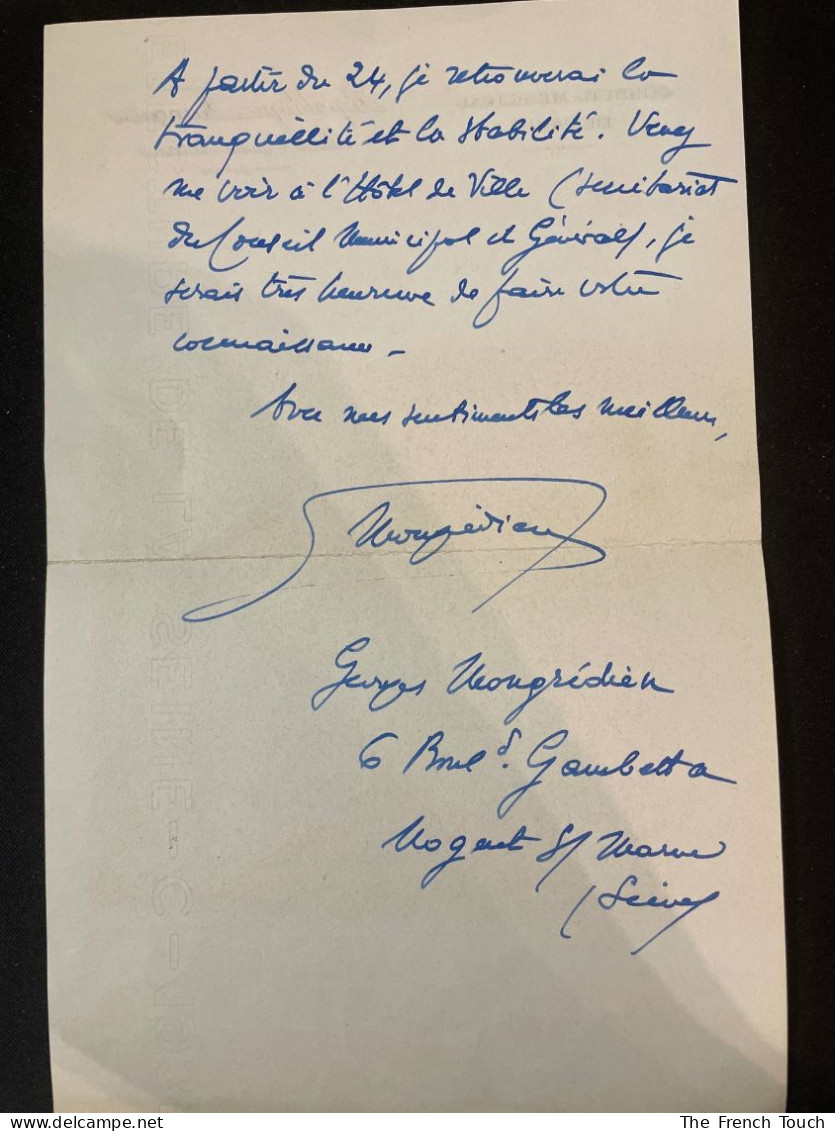 A partir du 24, je retrouverai la
tranquillité et la stabilité. Venez
me voir à l'Hôtel de Ville (secrétariat
du Conseil Municipal et Général), je
serais très heureux de faire votre
connaissance -
Avec mes sentiments les meilleurs,
Mongrédien
Georges Mongrédien
6 Boul d. Gambetta
Nogent s/ Marne
(Seine)
The French Touch